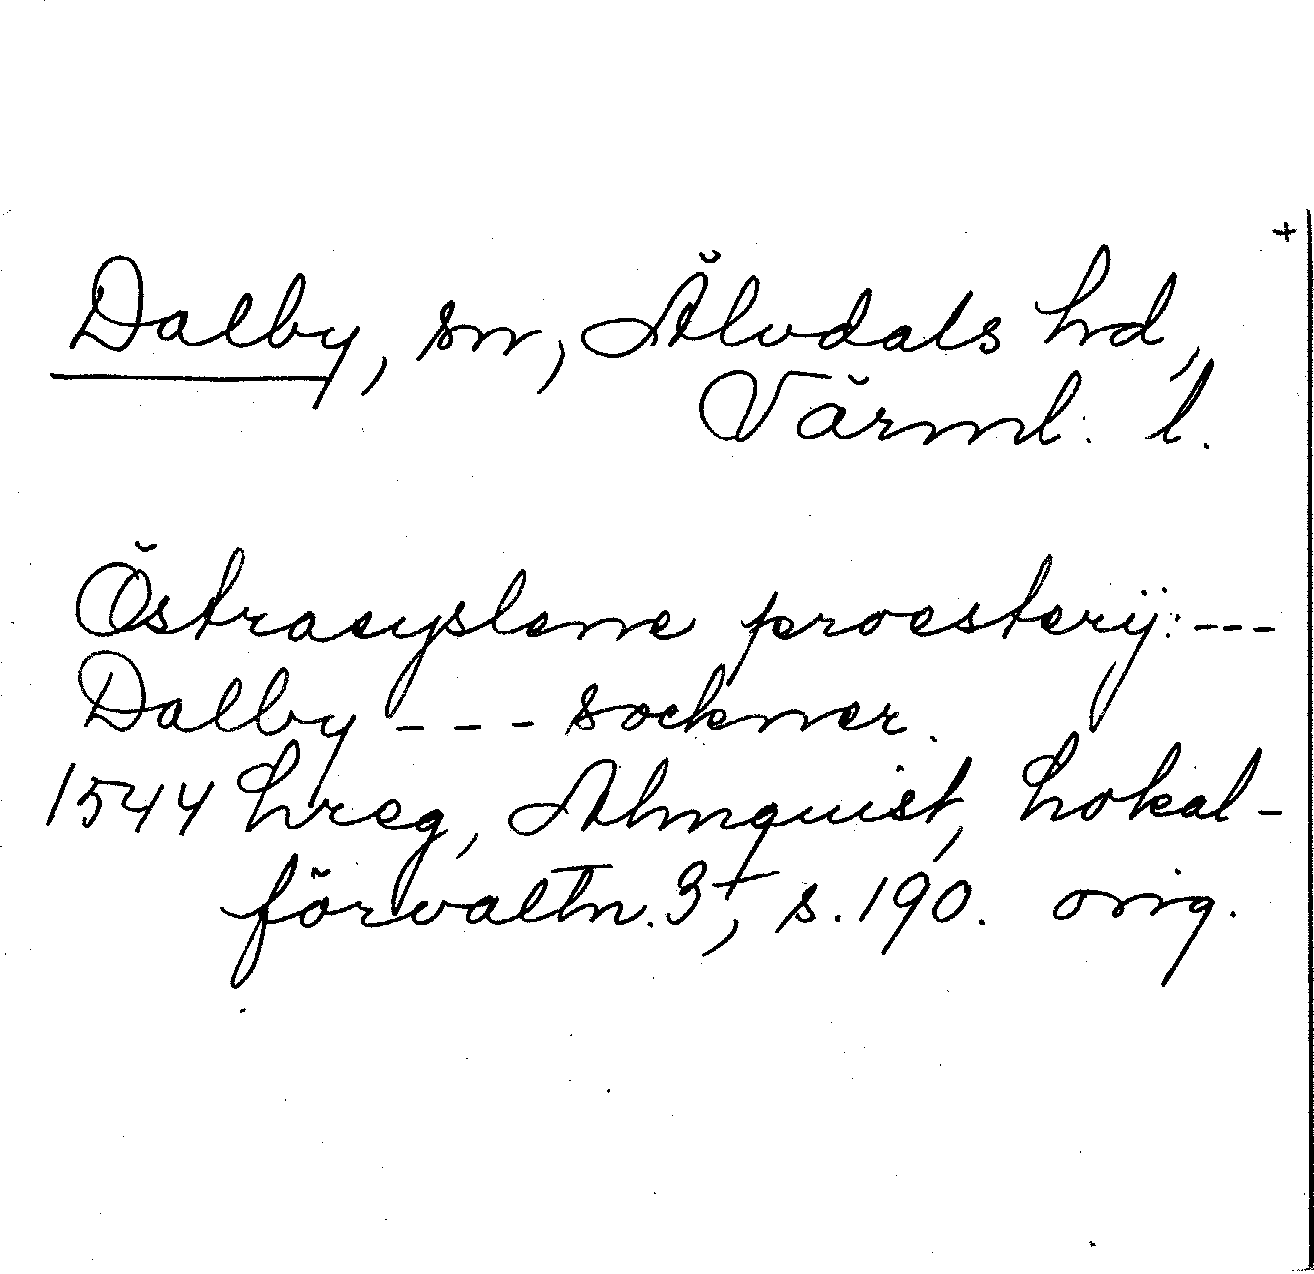 +
Dalby, sn, Älvdals hd,
Värml. l.
Östraeyslenne proesterÿ: ---
Dalby --- sockner.
1544 hreg, Almquist, Lokal-
förvaltn. 3+, s. 190. orig.